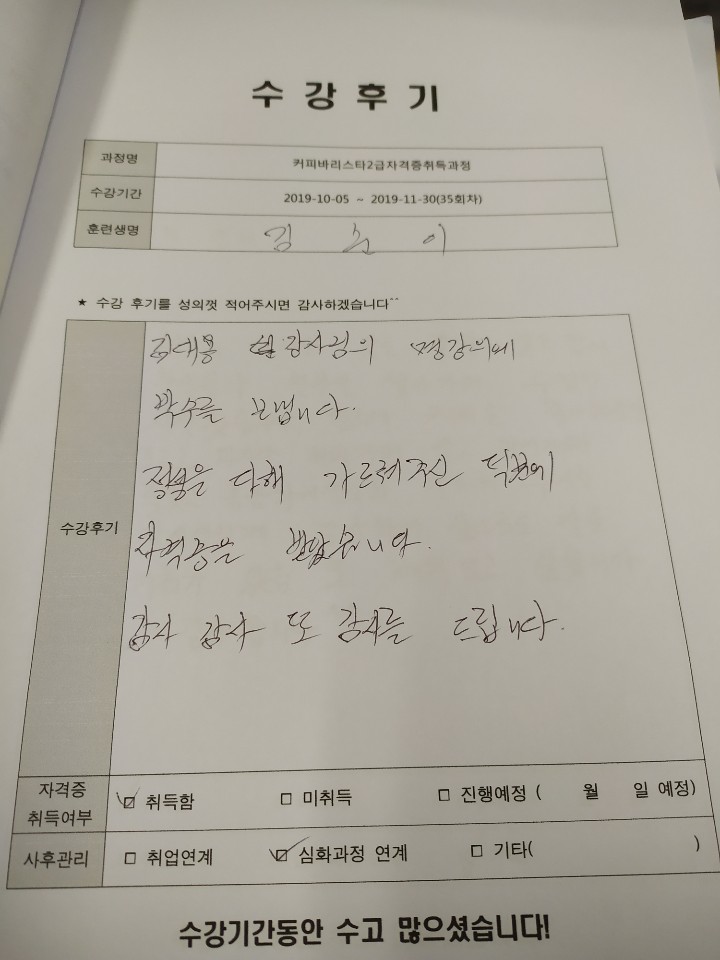 수강후기
과정명 커피바리스타2급자격증취득과정
수강기간 2019-10-05 ~ 2019-11-30(35회차)
훈련생명 김 이
★ 수강 후기를 성의껏 적어주시면 감사하겠습니다^^
수강후기
강사님의 명강의에
박수를 보냅니다.
정성을 다해 가르쳐주신 덕분에
자격증을 받았습니다.
감사 감사 또 감사를 드립니다.
자격증 취득여부 ☑ 취득함 □ 미취득 □ 진행예정 ( 월 일 예정)
사후관리 □ 취업연계 ☑ 심화과정 연계 □ 기타( )
수강기간동안 수고 많으셨습니다!